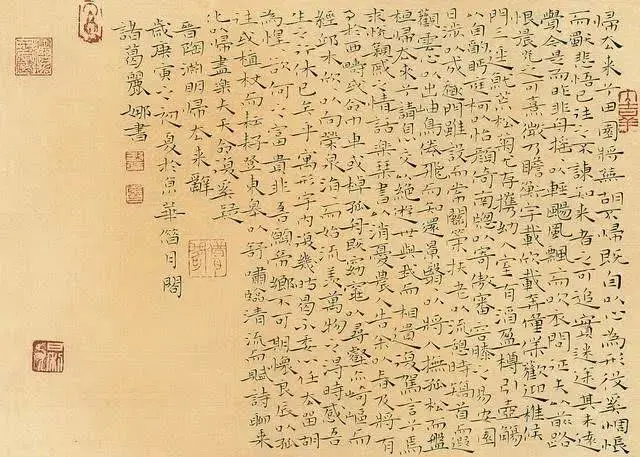 歸去來兮田園將蕪胡不歸既自以心為形役奚惆悵
而獨悲悟已往之不諫知來者之可追實迷途其未遠
覺今是而昨非舟搖搖以輕颺風飄飄而吹衣問征夫以前路
恨晨光之熹微乃瞻衡宇載欣載奔僮僕歡迎稚子候
門三逕就荒松菊猶存攜幼入室有酒盈樽引壺觴
以自酌眄庭柯以怡顏倚南窗以寄傲審容膝之易安園
日涉以成趣門雖設而常關策扶老以流憩時矯首而遐
觀雲無心以出岫鳥倦飛而知還景翳翳以將入撫孤松而盤
桓歸去來兮請息交以絕游世與我而相遺復駕言兮焉
求悅親戚之情話樂琴書以消憂農人告余以春及將有
事於西疇或命巾車或棹孤舟既窈窕以尋壑亦崎嶇而
經邱木欣欣以向榮泉涓涓而始流羨萬物之得時感吾
生之行休已矣乎寓形宇內復幾時曷不委心任去留胡
為遑遑欲何之富貴非吾願帝鄉不可期懷良辰以孤
往或植杖而耘耔登東皋以舒嘯臨清流而賦詩聊乘
化以歸盡樂夫天命復奚疑
晉陶淵明歸去來辭
歲庚寅之初夏於京華簪月閣
諸葛麗娜書